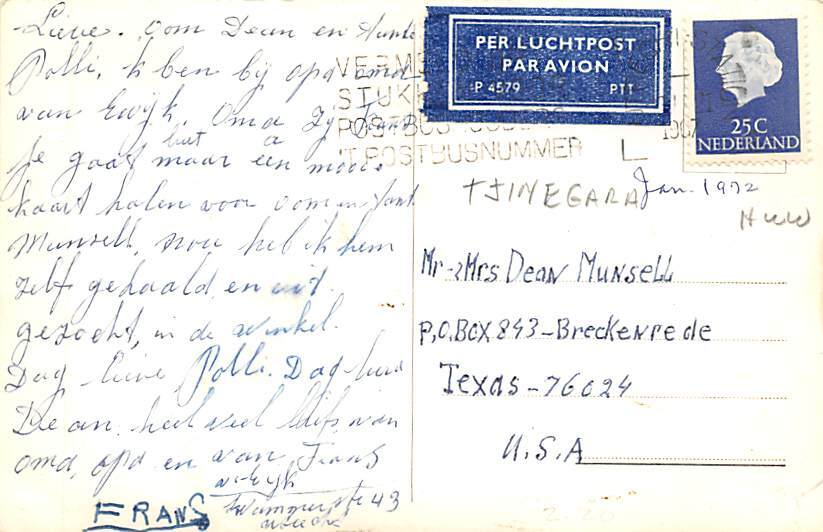 Lieve. oom Dean en tante
Polli, ik ben bij opa oma
van Ewijk. Oma zij Frans
je gaat maar een mooie
kaart halen voor oom en tant.
Munsell, nou heb ik hem
zelf gehaald, en uit.
gezocht, in de winkel.
Dag lieve Polli. Dag
Dean, heel veel liefs van
oma, opa en van Frans
v. Ewijk
43
FRANS
PER LUCHTPOST
PAR AVION
P 4579 PTT
25C
NEDERLAND
VERME
STUK
POSTBUS
'T POSTBUSNUMMER
TJINEGARA
Jan. 1972
Mr - Mrs Dean Munsell
P.O.BOX 843-Breckenrede
Texas - 76024
U.S.A